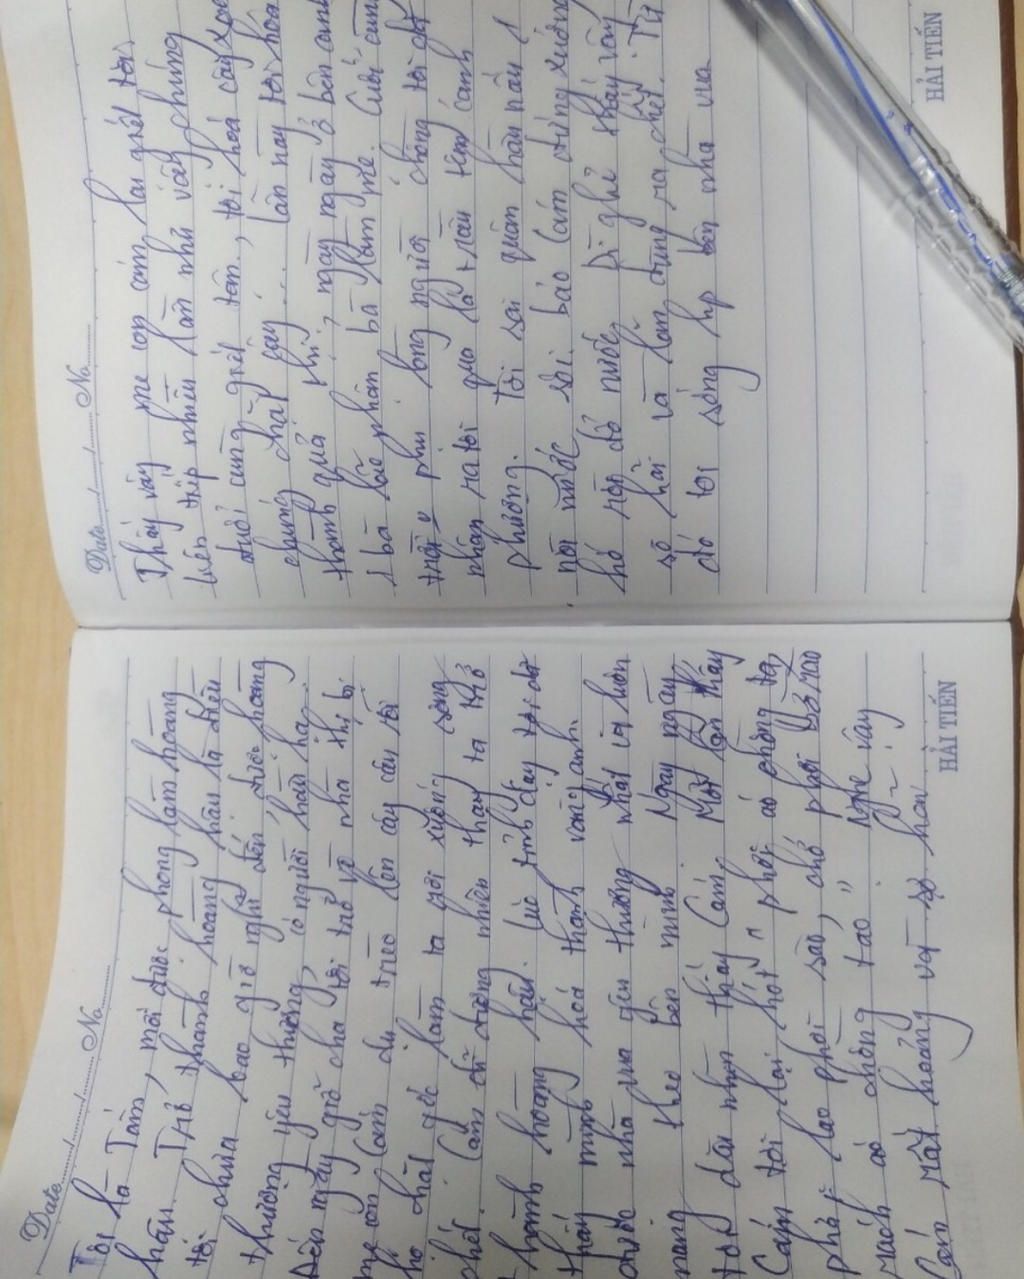 Date ...../...../..... No.........
Tôi là Tấm, mới được phong làm hoàng
hậu. Trở thành hoàng hậu là điều
tôi chưa bao giờ nghĩ đến, được hoàng
thượng yêu thương, có người hầu hạ,
Đến ngày giỗ cha, tôi trở về nhà thì bị
mẹ con Cám dụ trèo lên cây cau rồi
họ chặt gốc làm ta rơi xuống
chết. Cám cứ tưởng nhiêu thay ta trở
thành hoàng hậu. Lúc tỉnh dậy tôi đã
thấy mình hoá thành vàng anh.
được nhà vua yêu thương nhất và luôn
mang theo bên mình. Ngày ngày
tôi dần nhìn thấy Cám. Một lần thấy
Cám tôi lại hót " phơi áo chồng tao
phải lao phơi sào, chớ phơi bờ rào
rách áo chồng tao". Nghe vậy
Cám rất hoảng và sợ hãi.
HẢI TIẾN
Date ...../...../..... No.........
Thấy vậy mẹ con cám lại giết tôi.
Liên tiếp nhiều lần như vậy chúng
đuổi cùng giết tận, tôi hoá cây xoan
chúng chặt cây... lần này tôi hoá
thành quả thị, ngày ngày ở bên cạnh
1 bà lão phàm bà làm mẹ. Cuối cùng
trời phụ lòng người chàng tôi đã
nhận ra tôi qua lá trầu têm cánh
phượng. Tôi sai quân hầu nấu 1
nồi nước sôi bảo Cám đứng xuống
hố rồi đổ nước. Dì ghẻ thấy vậy
sợ hãi và lăn đùng ra chết. Từ
đó tôi sống hp bên nhà vua
HẢI TIẾN